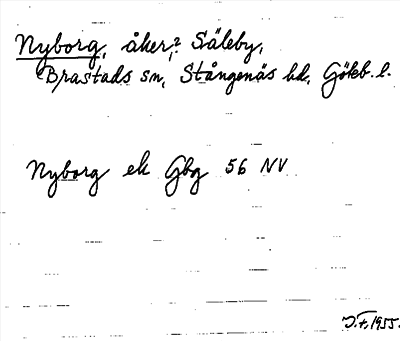 Nyborg, åker? Säleby,
Brastads sn, Stångenäs hd, Götb. l.
Nyborg ek Gbg 56 NV
J.F. 1955.